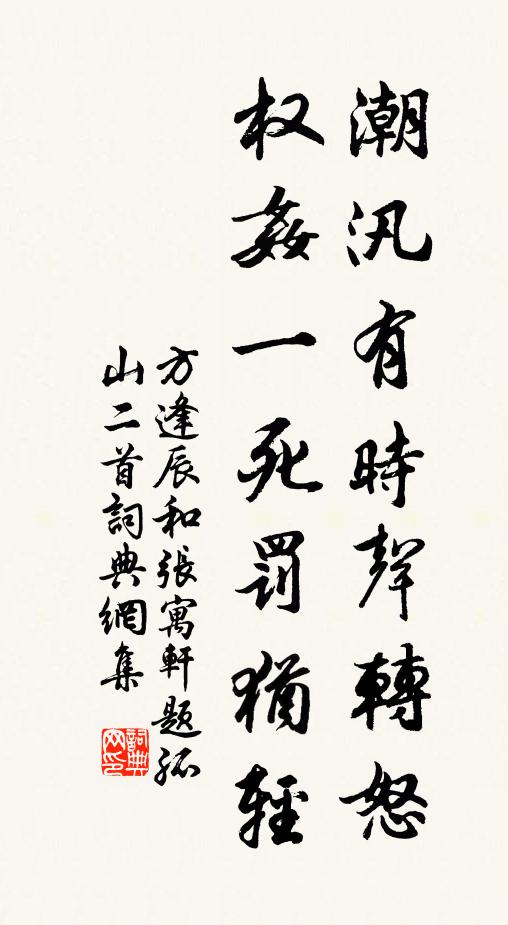 潮汛有時聲轉怒
权姦一死罰猶輕
方逢辰和張寓軒題孤
山二首詞典網集
詞典网印